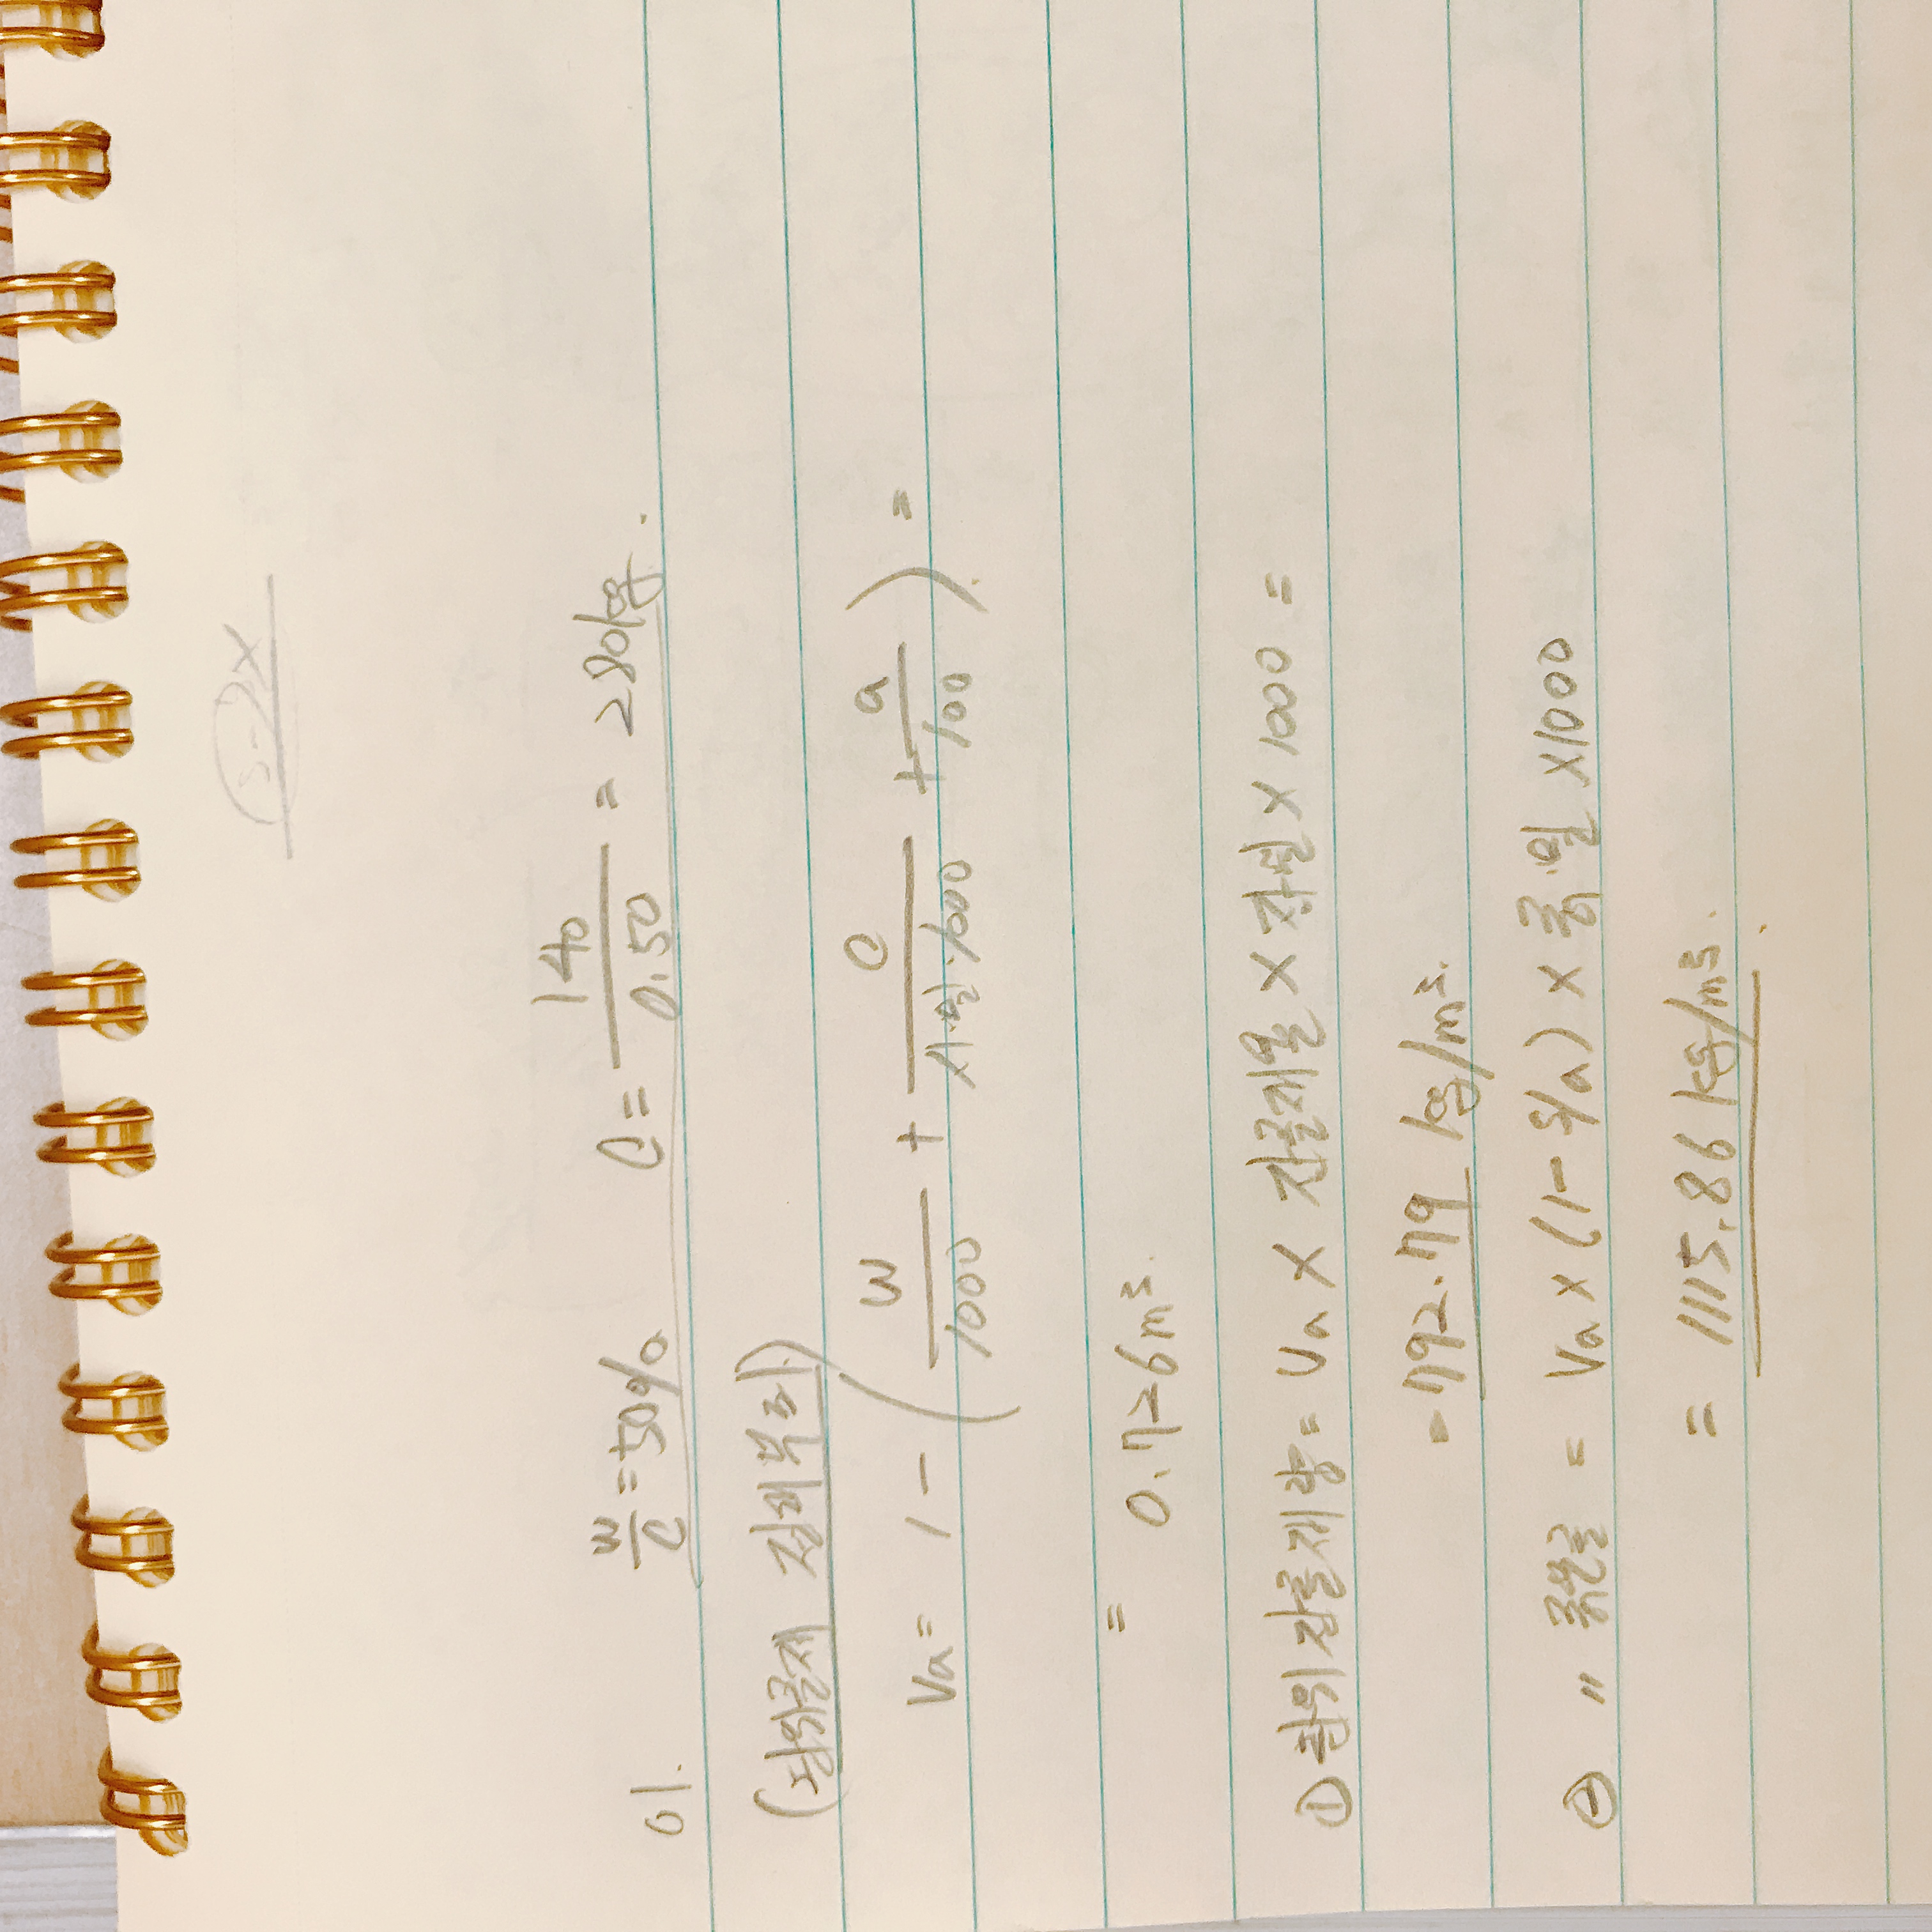 01. W/C = 50% C = 140/0.50 = 280kg.
(단위골재 절대부피)
Va = 1 - ( W/1000 + C/시.밀.1000 + a/100 ) =
= 0.726m³.
① 단위잔골재량 = Va × 잔골재율 × 잔.밀 × 1000 =
= 792.79 kg/m³.
② " 굵은골 = Va × (1 - S/a) × 굵.밀 ×1000
= 1115.86 kg/m³.